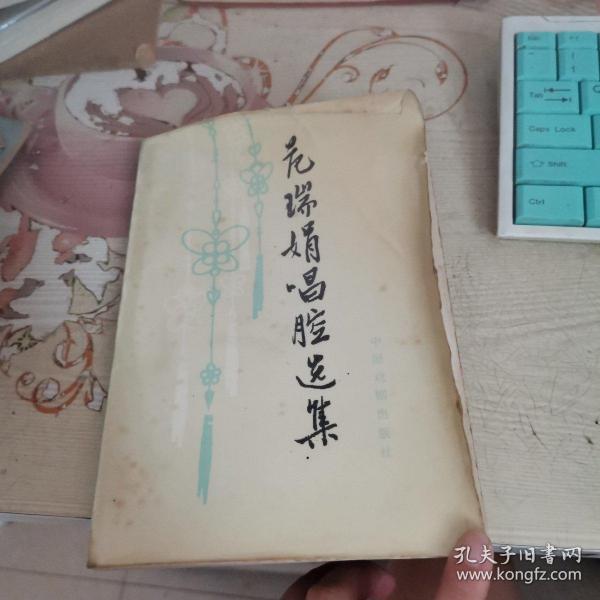 范瑞娟唱腔选集
中国戏剧出版社
Esc
F1
Tab
Caps Lock
Shift
Ctrl
孔夫子旧书网
www.kongfz.com